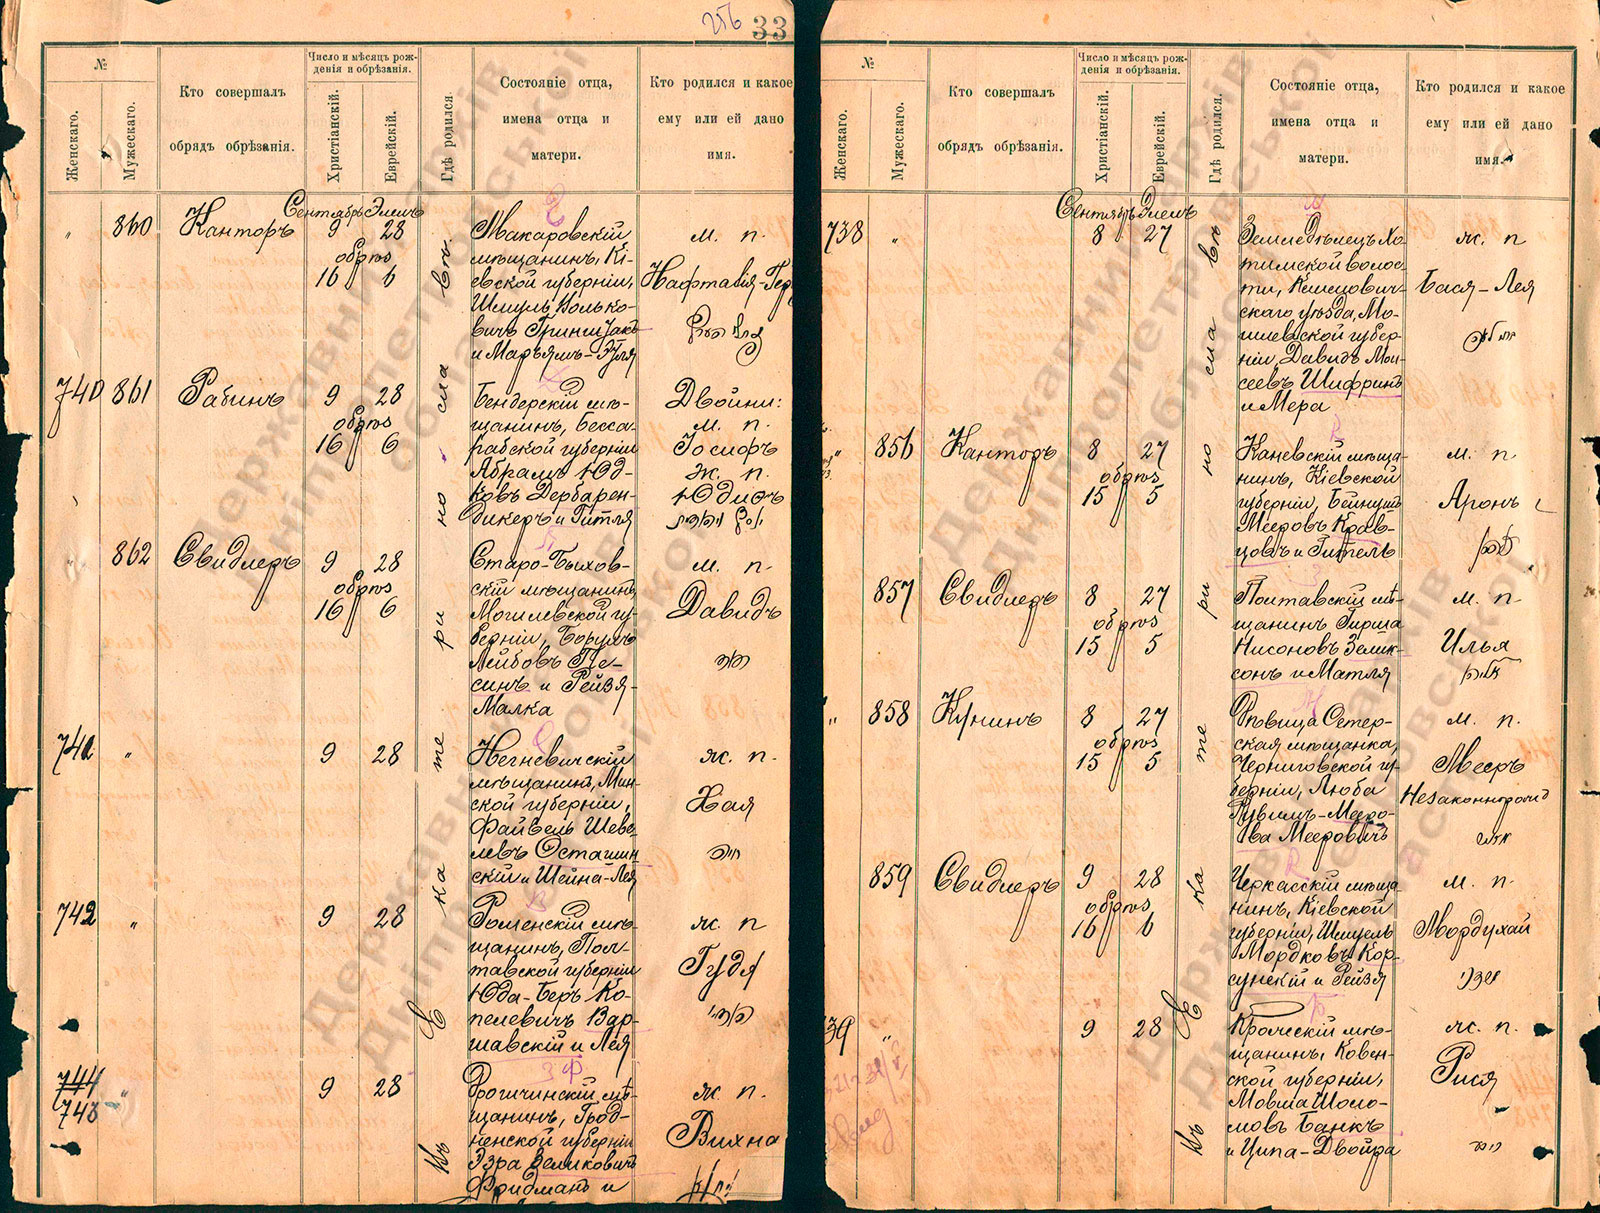 256 33
№
Женскаго.
Мужескаго.
Кто совершалъ
обрядъ обрѣзанія.
Число и мѣсяцъ рож-
денія и обрѣзанія.
Христіанскій.
Еврейскій.
Гдѣ родился.
Состояніе отца,
имена отца и
матери.
Кто родился и какое
ему или ей дано
имя.
Сентябрь Элелъ
" 860 Канторъ 9 28
обрѣз
16 6
Макаровскій
мѣщанинъ, Кі-
евской губерніи,
Шмуль Волько-
вичъ
и Марьямъ-
м. п.
740 861 Рабинъ 9 28
обрѣз
16 6
Бендерскій мѣ-
щанинъ, Бесса-
рабской губерніи
Абрамъ Юд-
ковъ Дербарен-
дикеръ и Гитля
Двойни:
м. п.
Іосифъ
ж. п.
Юдисъ
" 862 Свидлеръ 9 28
обрѣз
16 6
Старо-Быхов-
скій мѣщанинъ,
Могилевской гу-
берніи, Борухъ
Лейбовъ Пе-
синъ и Рейзя-
Малка
м. п.
Давидъ
דוד
741 " 9 28
Негневичскій
мѣщанинъ, Мин-
ской губерніи,
Файвель Шеве-
левъ Осташин-
скій и Шейна-Лея
ж. п.
Хая
חיה
742 " 9 28
Роменскій мѣ-
щанинъ, Пол-
тавской губерніи
Юда-Беръ Ко-
пелевичъ Вар-
шавскій и Лея
ж. п
Гудя
744
743 " 9 28
мѣ-
щанинъ, Грод-
ненской губерніи
Эзра Зеликовичъ
Фридманъ и
ж. п.
Вихна
Екатеринославѣ.
Въ
№
Женскаго.
Мужескаго.
Кто совершалъ
обрядъ обрѣзанія.
Число и мѣсяцъ рож-
денія и обрѣзанія.
Христіанскій.
Еврейскій.
Гдѣ родился.
Состояніе отца,
имена отца и
матери.
Кто родился и какое
ему или ей дано
имя.
Сентябрь Элелъ
738 " 8 27
Земледѣлецъ Хо-
тимской волос-
ти, Климович-
скаго уѣзда, Мо-
гилевской губер-
ніи, Давидъ Мои-
сеевъ Шифринъ
и Мера
ж. п
Бася-Лея
" 856 Канторъ 8 27
обрѣз
15 5
Каневскій мѣща-
нинъ, Кіевской
губерніи,
Мееровъ Крав-
цовъ и Гитель
м. п
Аронъ
857 Свидлеръ 8 27
обрѣз
15 5
Полтавскій мѣ-
щанинъ Гирша
Нисоновъ Зелик-
сонъ и Матля
м. п
Илья
" 858 Кунинъ 8 27
обрѣз
15 5
ская мѣщанка,
Черниговской гу-
берніи, Люба
Рувимъ-Мееро-
ва Мееровичъ
м. п.
Мееръ
Незаконнорожд
859 Свидлеръ 9 28
обрѣз
16 6
Черкасскій мѣща-
нинъ, Кіевской
губерніи, Шмуель
Мордковъ Кор-
сунскій и Рейзя
м. п.
Мордухай
39 " 9 28
мѣ-
щанинъ, Ковен-
ской губерніи,
Мовша Шоло-
мовъ Банкъ
и Ципа-Двойра
ж. п.
Рися
Екатеринославѣ
Въ
Державний архів
Дніпропетровської
області